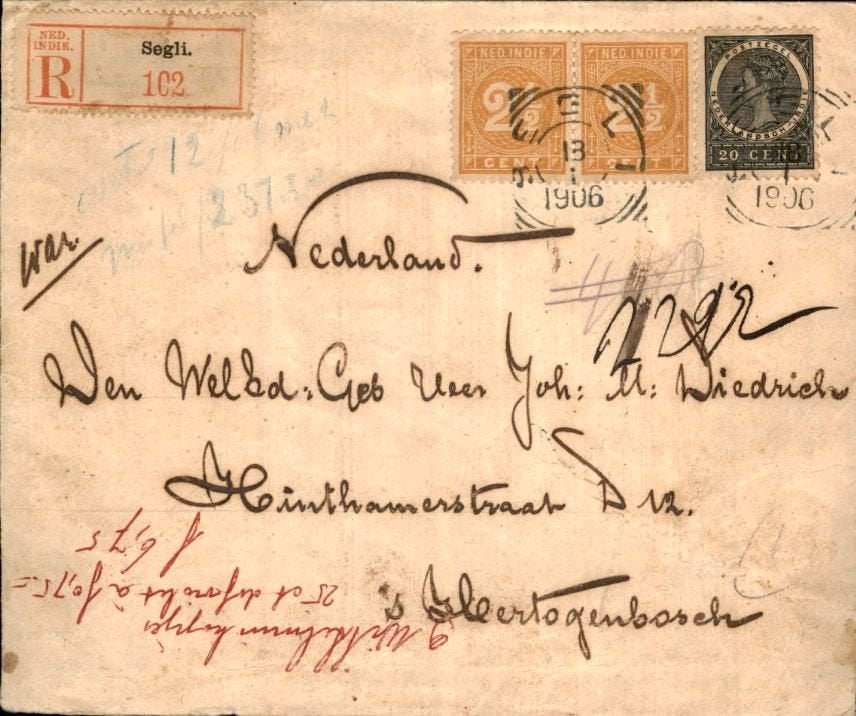 NED. INDIE.
R
Segli.
102
NED. INDIE
2½
CENT
NED. INDIE
2½
CENT
POSTZEGEL
NEDERLANDSCH-INDIE
20 CENT
SEGLI
13
1
1906
SEGLI
1906
12
War.
Nederland.
2292
Den WelEd: Geb Heer Joh: M: Diedrich
Hinthamerstraat D 12.
's Hertogenbosch
25 ct à f 0,75 =
f 6,75